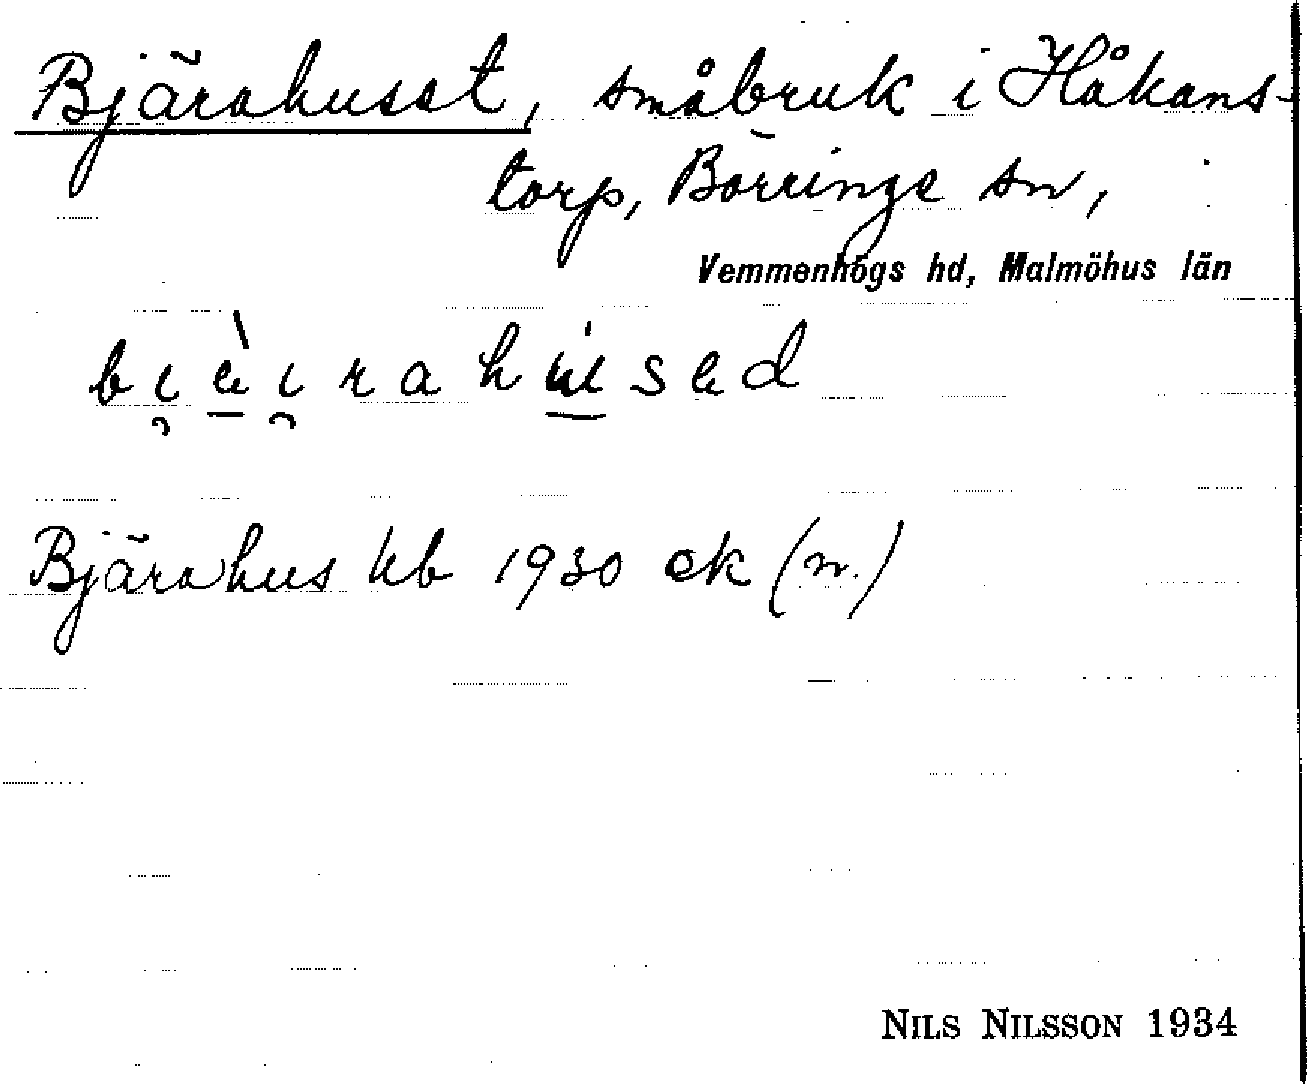 Bjärahuset, småbruk i Håkans-
torp, Börringe sn,
Vemmenhögs hd, Malmöhus län
Bjärahus kb 1930 ek (m.)
NILS NILSSON 1934